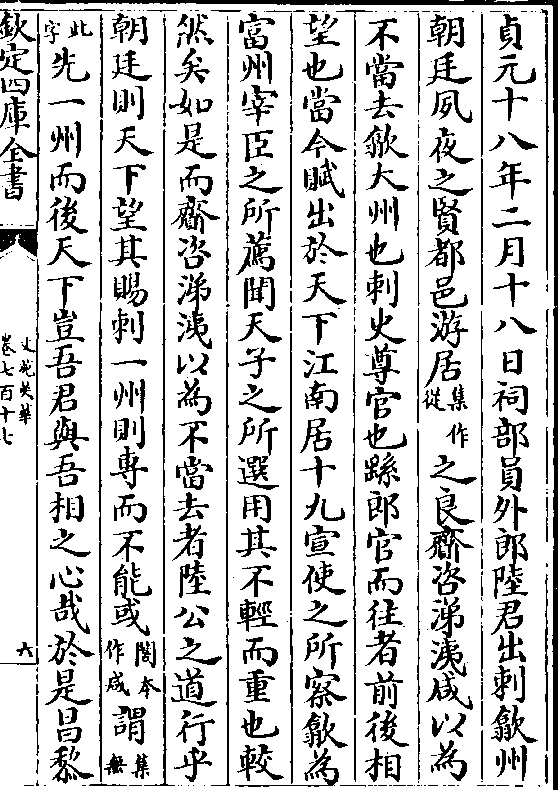 貞元十八年二月十八日祠部員外郎陸君出刺歙州
朝廷夙夜之賢都邑游居集作從之良齎咨涕洟咸以為
不當去歙大州也刺史尊官也繇郎官而往者前後相
望也當今賦出於天下江南居十九宣使之所察歙為
富州宰臣之所薦聞天子之所選用其不輕而重也較
然矣如是而齎咨涕洟以為不當去者陸公之道行乎
朝廷則天下望其賜刺一州則專而不能或閣本作咸謂集無
此字先一州而後天下豈吾君與吾相之心哉於是昌黎
欽定四庫全書
文苑英華
卷七百十七
六